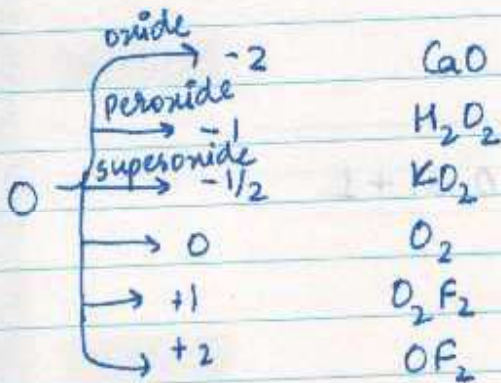 oxide
-2 CaO
peroxide
-1 H₂O₂
superoxide
O -1/2 KO₂
0 O₂
+1 O₂F₂
+2 OF₂